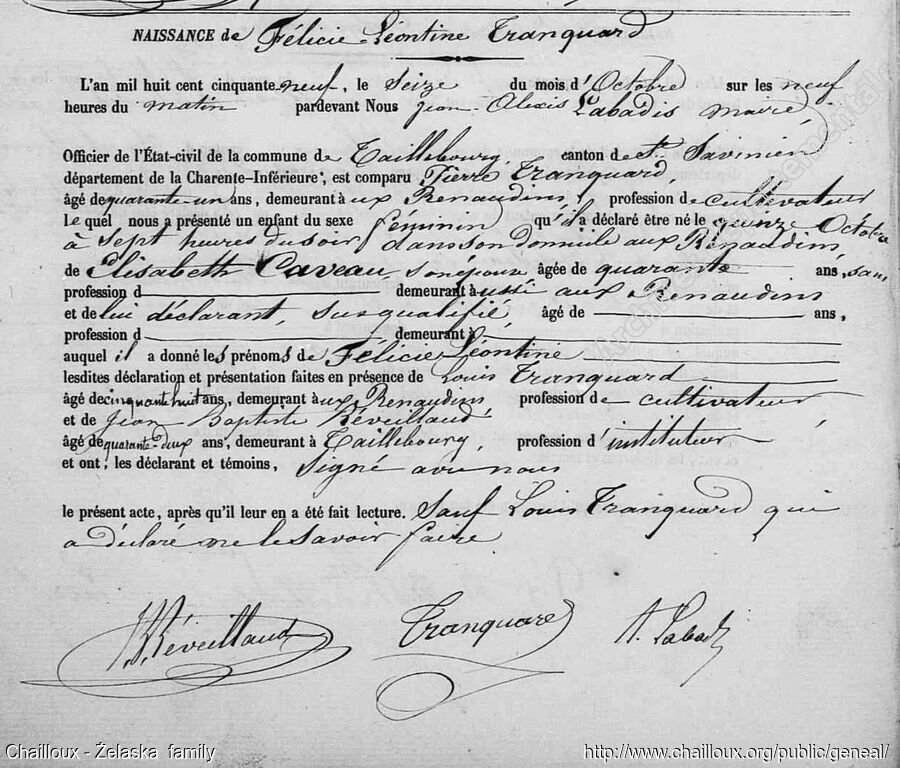 NAISSANCE de Félicie Léontine Tranquard
L'an mil huit cent cinquante neuf, le Seize du mois d'Octobre sur les neuf
heures du matin pardevant Nous Jean Alexis Labadis maire,
Officier de l'État-civil de la commune de Taillebourg, canton de St. Savinien
département de la Charente-Inférieure, est comparu Pierre Tranquard
âgé de quarante-un ans, demeurant à ux Renaudins, profession de cultivateur
le quel nous a présenté un enfant du sexe féminin qu'il a déclaré être né le quinze Octobre
à Sept heures du soir dans son domicile aux Renaudins
de Élisabeth Caveau, son épouse, âgée de quarante ans, sans
profession d demeurant à ussi aux Renaudins
et de lui déclarant, susqualifié, âgé de ans,
profession d demeurant à
auquel il a donné les prénoms de Félicie Léontine
lesdites déclaration et présentation faites en présence de Louis Tranquard
âgé de cinquante huit ans, demeurant à ux Renaudins profession de cultivateur
et de Jean Baptiste Réveillaud
âgé de quarante-deux ans, demeurant à Taillebourg, profession d'instituteur
et ont, les déclarant et témoins, signé avec nous
le présent acte, après qu'il leur en a été fait lecture. Sauf Louis Tranquard qui
a déclaré ne le savoir faire
Réveillaud Tranquard A. Labadis
Chailloux - Želaska family http://www.chailloux.org/public/geneal/